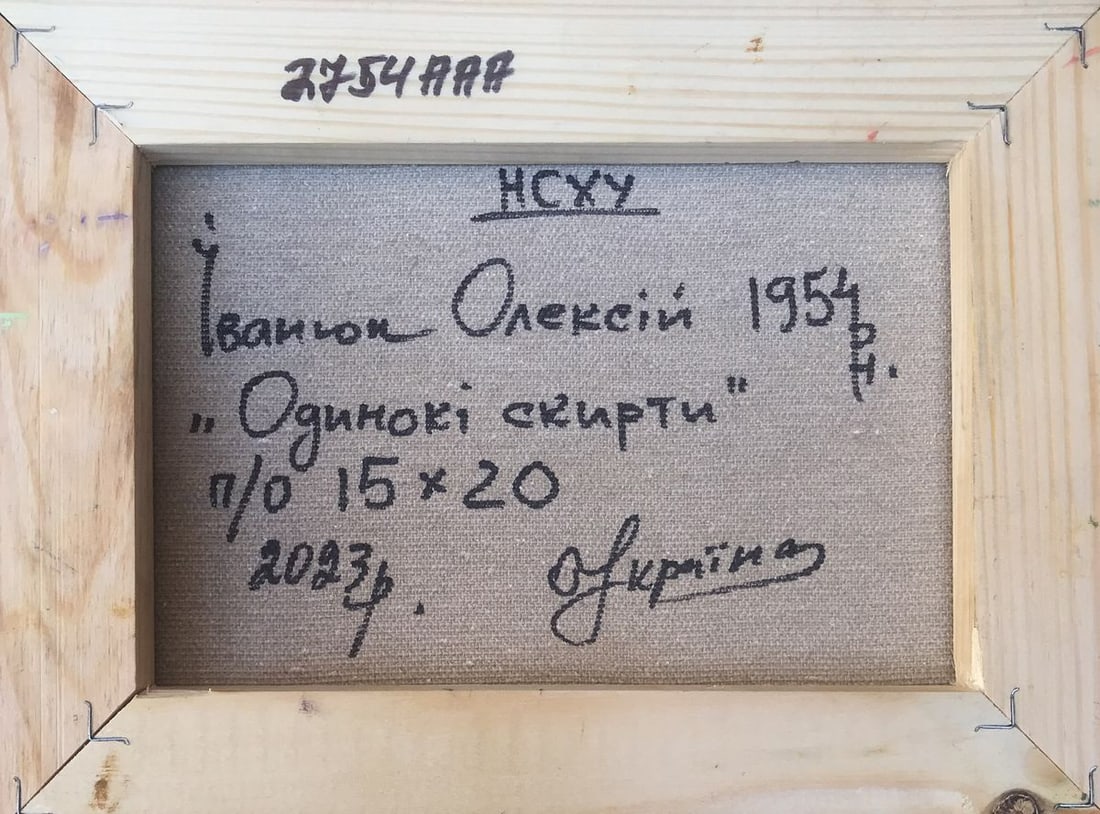 2754ААА
НСХУ
Іванюк Олексій 1954 р.н.
„Одинокі скирти"
п/о 15×20
2023р. Україна